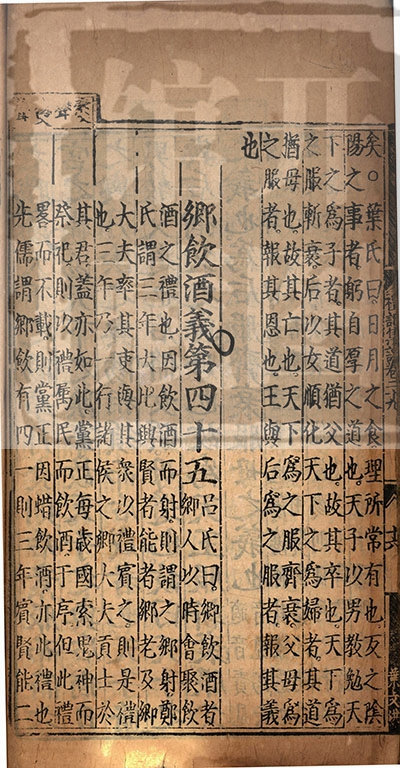 矣○葉氏曰日月之食理所常有也反之陰
陽之事者躬自厚之道也天子以男教勉天
下之爲子者其道猶父也故其卒也天下爲
之服斬衰后以女順化天下之爲婦者其道
猶母也故其亡也天下爲之服齊衰父母爲
之服者報其恩也王與后爲之服者報其義
也
鄉飲酒義第四十五
呂氏曰鄉飲酒者
鄉人以時會聚飲
酒之禮也因飲酒而射則謂之鄉射鄭
氏謂三年大比興賢者能者鄉老及鄉
大夫率其吏與其衆以禮賓之則是禮
也三年乃一行諸侯之卿大夫貢士於
其君蓋亦如此黨正每歲國索鬼神而
祭祀則以禮屬民而飲酒于序但此禮
畧而不載則黨正因蜡飲酒亦此禮也
先儒謂鄉飲有四一則三年賓賢能二